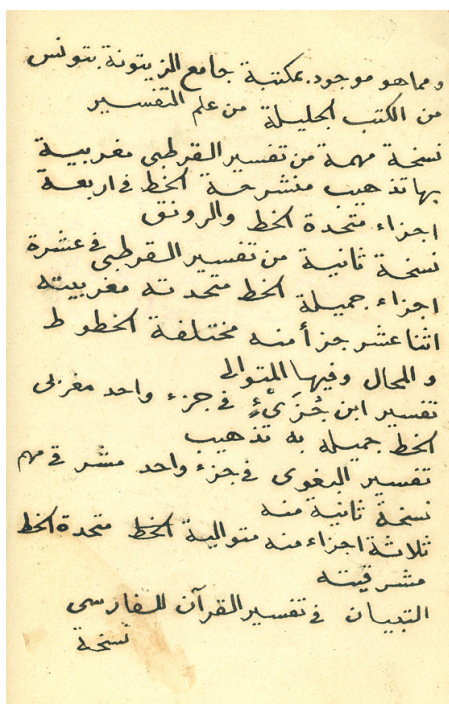 ومما هو موجود بمكتبة جامع الزيتونة بتونس
من الكتب الجليلة من علم التفسير
نسخة مهمة من تفسير القرطبي مغربية
بها تذهيب منشرحة الخط في اربعة
اجزاء متحدة الخط والرونق
نسخة ثانية من تفسير القرطبي في عشرة
اجزاء جميلة الخط متحدته مغربيته
اثنا عشر جزأ منه مختلفة الخطوط
والمحال وفيها المتوالي
تفسير ابن جُزَيْءٍ في جزء واحد مغربي
الخط جميله به تذهيب
تفسير البغوي في جزء واحد مشرقي مهم
نسخة ثانية منه
ثلاثة اجزاء منه متوالية الخط متحدة الخط
مشرقيته
التبيان في تفسير القرآن للفارسي
نسخة